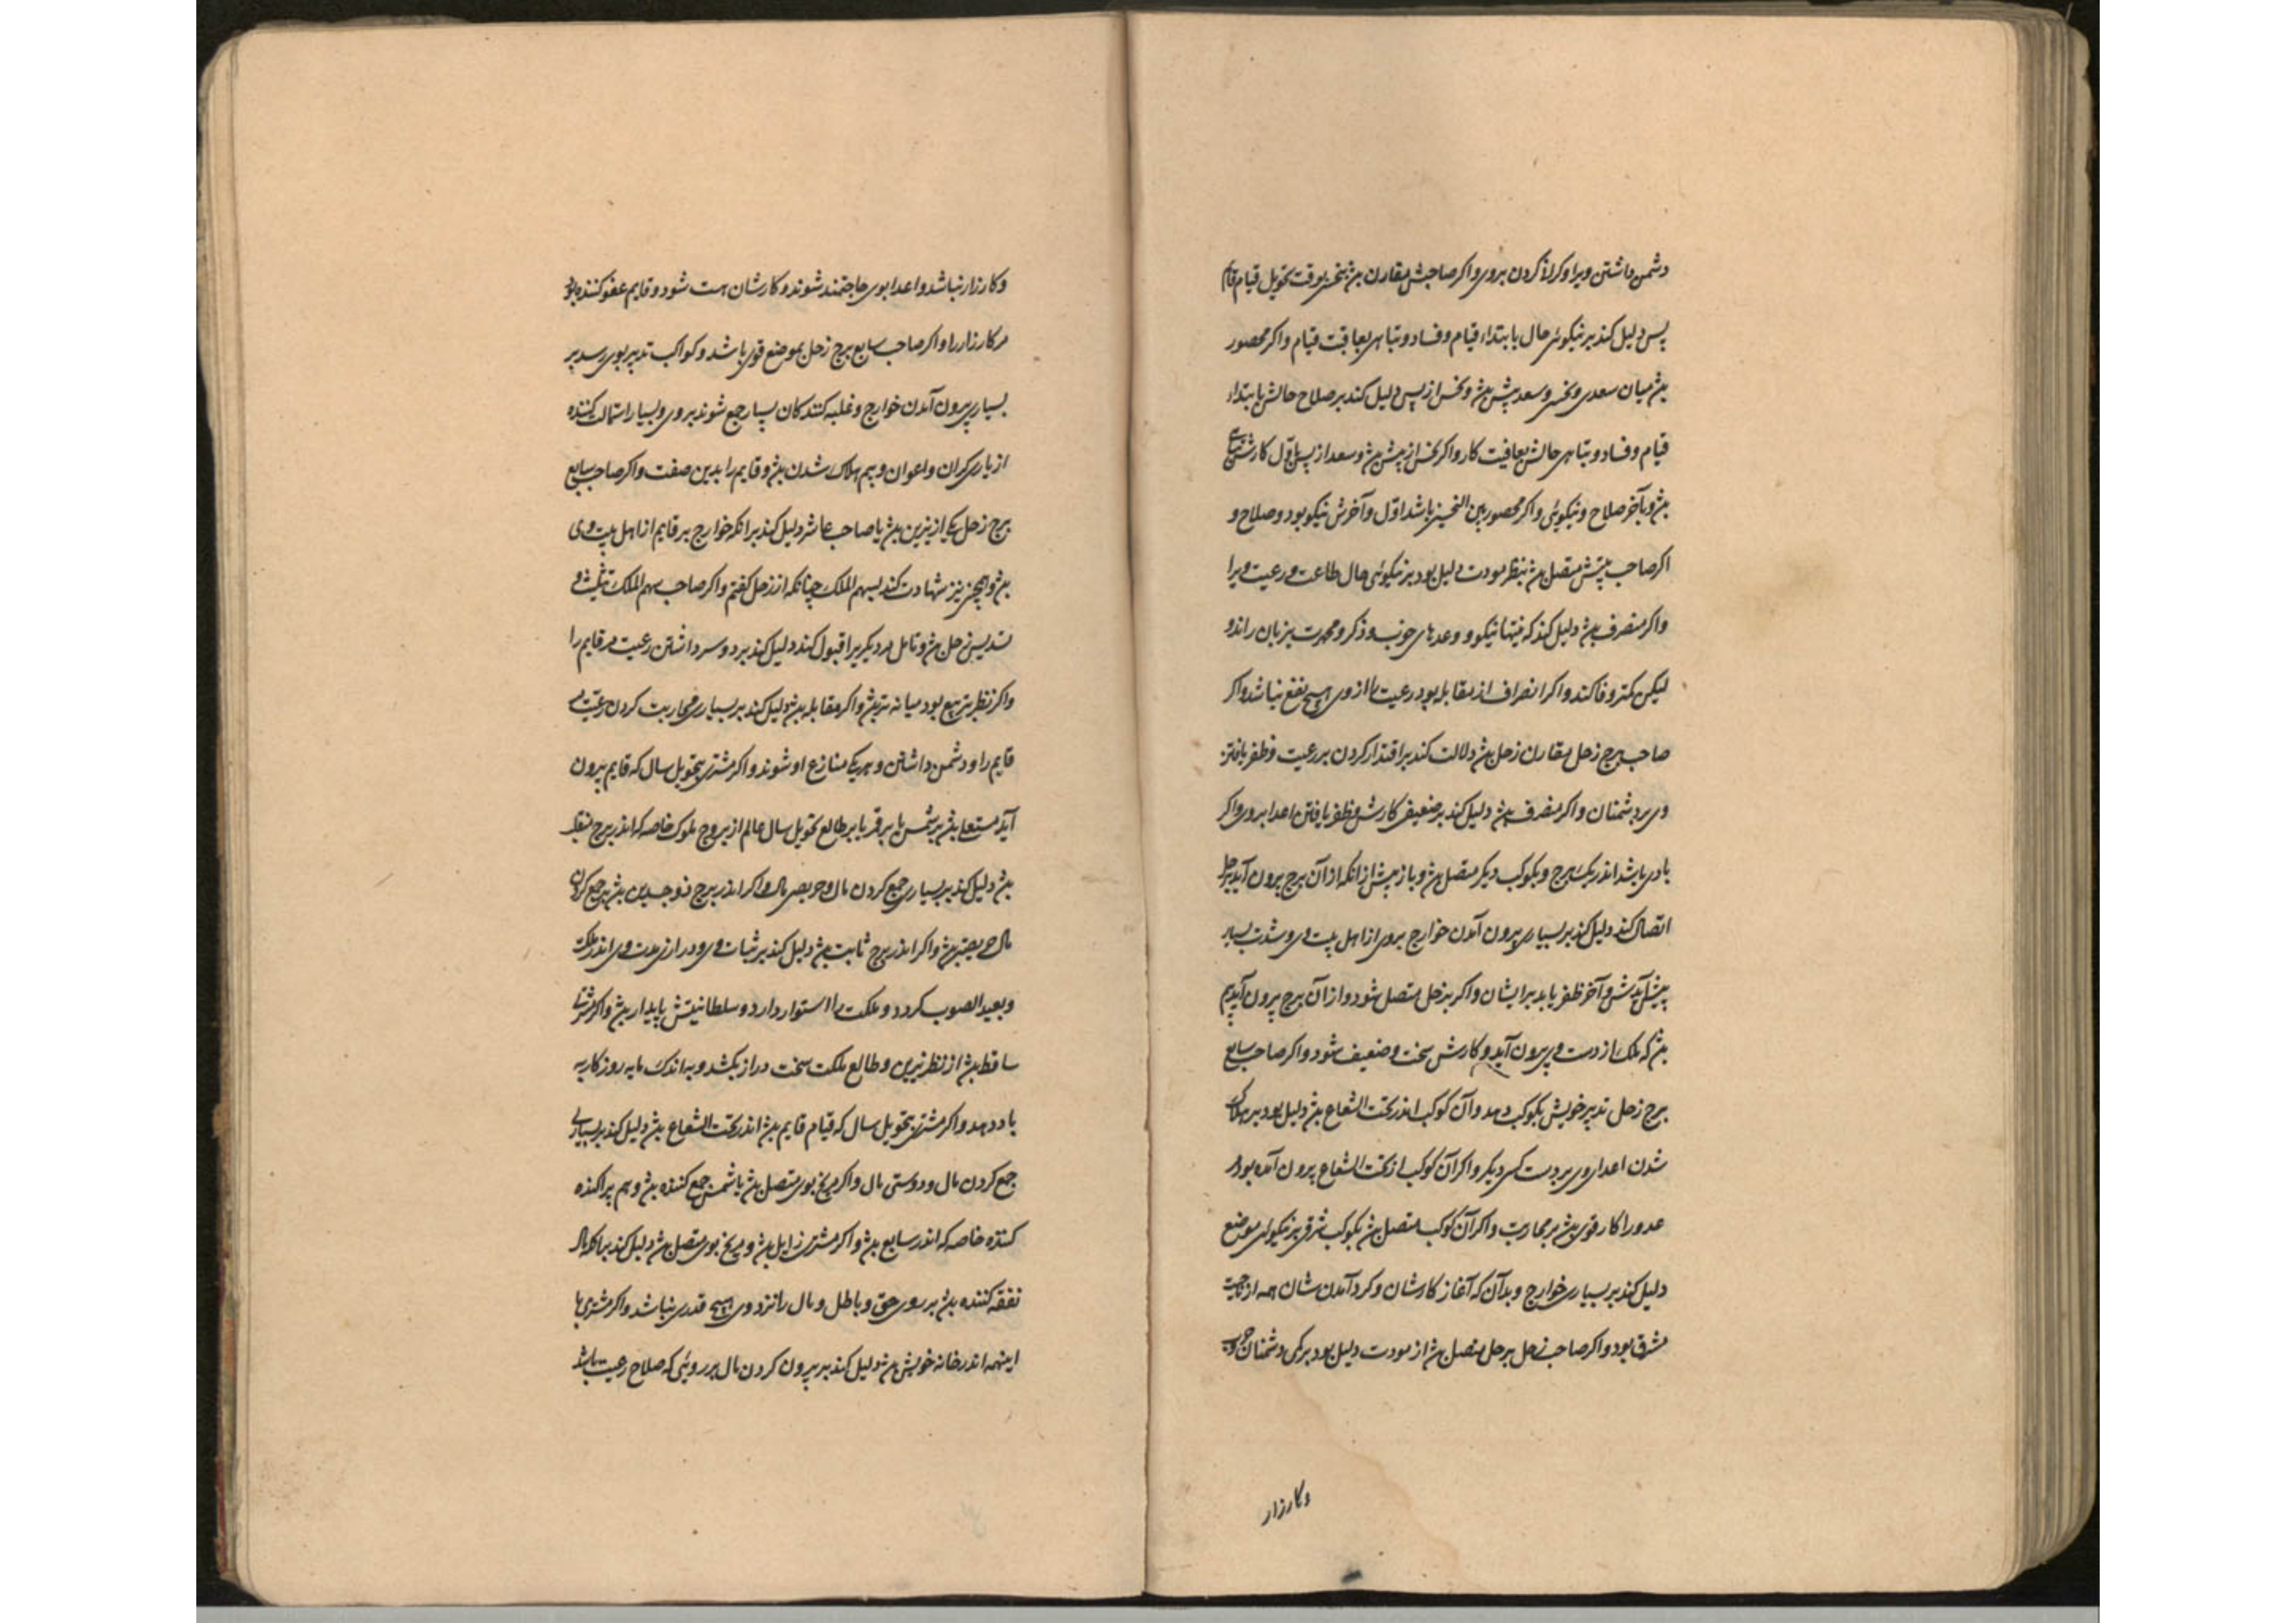 دشمن داشتن ویرا و کراذ کردن بروی و اکر صاحبش مقارن بذ بنحس بوقت تحویل قیام قایم
پس دلیل کند بر نیکوئی حال بابتداء قیام و فساد و تباهی بعاقبت قیام و اکر محصور
بذ میان سعدی و نحسی و سعد پیش بذ و نحس از پس دلیل کند بر صلاح حالش بابتداء
قیام و فساد و تباهی حالش بعاقبت کار و اکر نحس از پیش بذ و سعد از پس باول کارش
بذ و بآخر صلاح و نیکوئی و اکر محصور بین النحسین باشد اول و آخرش نیکو بود و صلاح و
اکر صاحب بیتش متصل بذ بنظر مودت دلیل بود بر نیکوئی حال طاعت و رعیت ویرا
و اکر منصرف بذ دلیل کند که نیتها نیکو و وعدهای خوب و ذکر و محمدت بزبان راند و
لیکن کمتر وفا کند و اکر انصراف از مقابله بود رعیت را از وی هیچ نفع نباشد و اکر
صاحب برج زحل مقارن زحل بذ دلالت کند بر اقتدار کردن بر رعیت و ظفر یافتن
وی بر دشمنان و اکر منصرف بذ دلیل کند بر ضعیفی کارش و ظفر یافتن اعدا بروی و اکر
با وی باشد اندر یک برج و بکوکب دیکر متصل بذ و باز پیش از انکه از آن برج برون آید بزحل
اتصال کند دلیل کند بر بسیاری برون آمدن خوارج بروی از اهل بیت وی و شدت بسیار
پیش آیدش و آخر ظفر یابد برایشان و اکر بزحل متصل شود و از آن برج برون آید بیم
بذ که ملک از دست وی برون آید و کارش سخت و ضعیف شود و اکر صاحب سابع
برج زحل تدبیر خویش بکوکب دهد و آن کوکب اندر تحت الشعاع بذ دلیل بود بر هلاک
شدن اعدا وی بر دست کسی دیکر و اکر آن کوکب از تحت الشعاع برون آمده بود
عدو را کار قوی بذ بر محاربت و اکر آن کوکب متصل بذ بکوکب شرقی بر نیکوئی موضع
دلیل کند بر بسیاری خوارج و بدآن که آغاز کارشان و کرد آمدن شان همه از ناحیت
مشرق بود و اکر صاحب زحل بزحل متصل بذ از مودت دلیل بود بر کمی دشمنان
وکارزار
و کارزار نباشد و اعدا بوی حاجتمند شوند و کارشان هست شود و قایم عفو کننده بود
مر کارزار را و اکر صاحب سابع برج زحل بموضع قوی باشد و کواکب تدبیر بوی رسد بر
بسیاری برون آمدن خوارج و غلبه کنندکان بسیار جمع شوند بروی و بسیار استمالت کننده
از یاری کران و اعوان و بیم هلاک شدن بذ و قایم را بدین صفت و اکر صاحب سابع
برج زحل یکی از نیرین بذ یا صاحب عاشر دلیل کند بر انکه خوارج بر قایم از اهل بیت وی
بذ و همچنین نیز شهادت کند بسهم الملک چنانکه از زحل کفتم و اکر صاحب سهم الملک تثلیث و
تسدیس زحل بذ و تامل مر دیکریرا قبول کند دلیل کند بر دوست داشتن رعیت مر قایم را
و اکر نظر تربیع بود میانه تر بذ و اکر مقابله بذ دلیل کند بر بسیاری محاربت کردن رعیت
قایم را و دشمن داشتن و هر یک منازع او شوند و اکر مشتری بتحویل سال که قایم برون
آید مستعلی بذ بر شمس یا بر قمر یا بر طالع تحویل سال عالم از بروج ملوک خاصه که اندر برج منقلب
بذ دلیل کند بر بسیاری جمع کردن مال و حریصی مال و اکر اندر برج ذو جسدین بذ بر جمع کردن
مال حریص بذ و اکر اندر برج ثابت بذ دلیل کند بر ثبات وی و درازی مدت وی اندر ملکت
و بعید الصوب کردد و ملکت را استوار دارد و سلطانیتش پایدار بذ و اکر مشتری
ساقط بذ از نظر نیرین و طالع ملکت سخت دراز نکشد و به اندک مایه روزکار به
باد دهد و اکر مشتری بتحویل سال که قیام قایم بذ اندر تحت الشعاع بذ دلیل کند بر بسیاری
جمع کردن مال و دوستی مال و اکر مریخ بوی متصل بذ یا شمس جمع کننده بذ و هم پراکنده
کننده خاصه که اندر سابع بذ و اکر مشتری زایل بذ و مریخ بوی متصل بذ دلیل کند
نفقه کننده بذ بر روی حق و باطل و مال را نزد وی هیچ قدری نباشد و اکر مشتری با
اینهمه اندر خانه خویش بذ دلیل کند بر برون کردن مال بر روئی که صلاح رعیت باشد